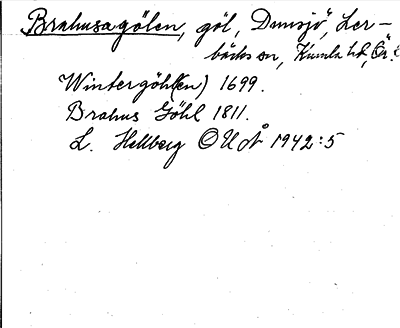 Brahusagölen, göl, Dunsjö, Ler-
bäcks sn, Kumla hd, Ör.
Wintergöhl(en) 1699.
Brahus Göhl 1811.
L. Hellberg OUÅ 1942:5